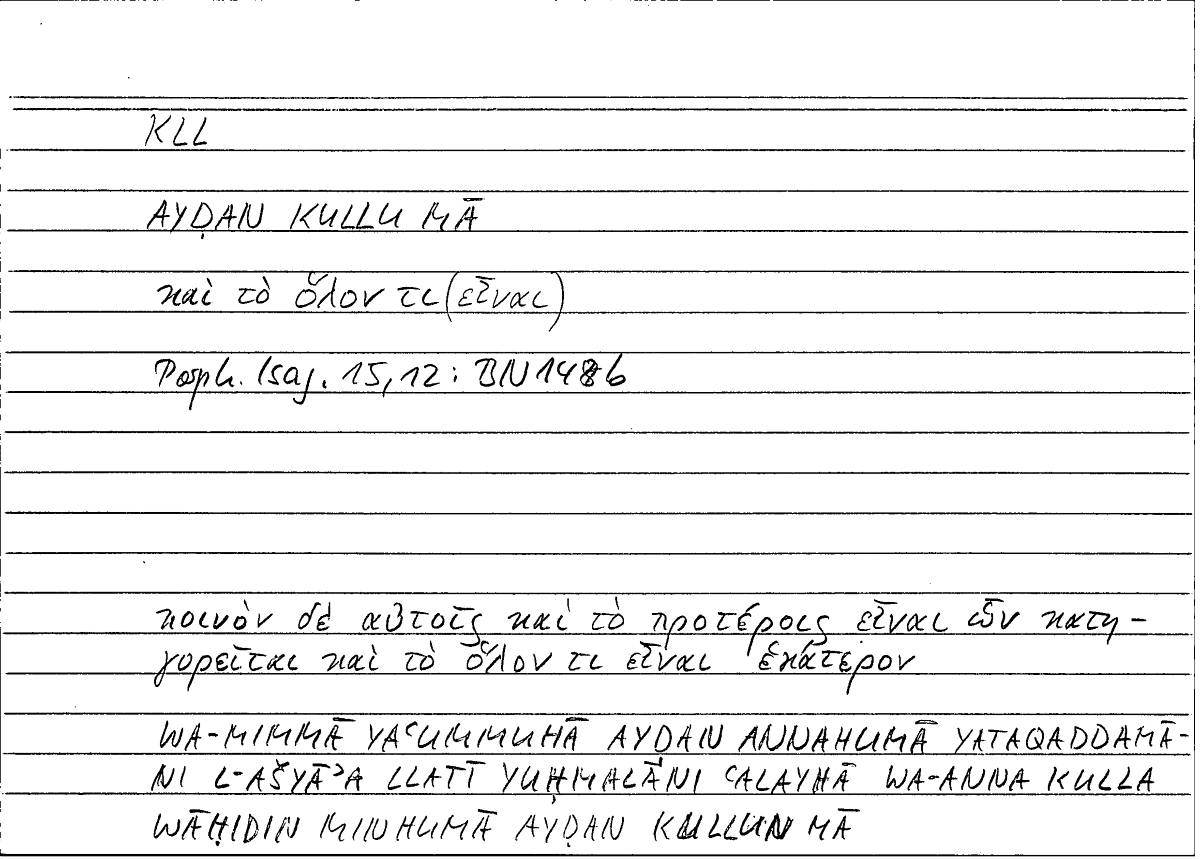 KLL
AYḌAN KULLU MĀ
καὶ τὸ ὅλον τι (εἶναι)
Porph. Isag. 15,12: BN 148b
κοινὸν δὲ αὐτοῖς καὶ τὸ προτέροις εἶναι ὧν κατη-
γορεῖται καὶ τὸ ὅλον τι εἶναι ἑκάτερον
WA-MIMMĀ YAʿUMMUHĀ AYḌAN ANNAHUMĀ YATAQADDAMĀ-
NI L-AŠYĀʾA LLATĪ YUḤMALĀNI ʿALAYHĀ WA-ANNA KULLA
WĀḤIDIN MINHUMĀ AYḌAN KULLUN MĀ